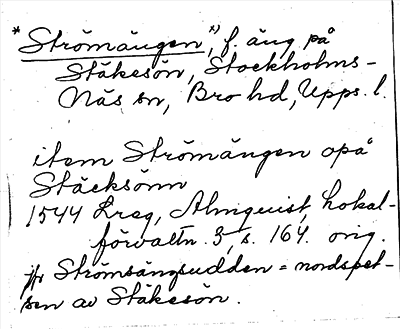 *Strömängen,*) f. äng på
Stäkesön, Stockholms-
Näs sn, Bro hd, Upps. l.
item Strömängen opå
Stäcksönn
1544 Lreg, Almquist, Lokal-
förvaltn. 3, s. 164. orig.
*) Strömsängsudden = nordspet-
sen av Stäkesön.